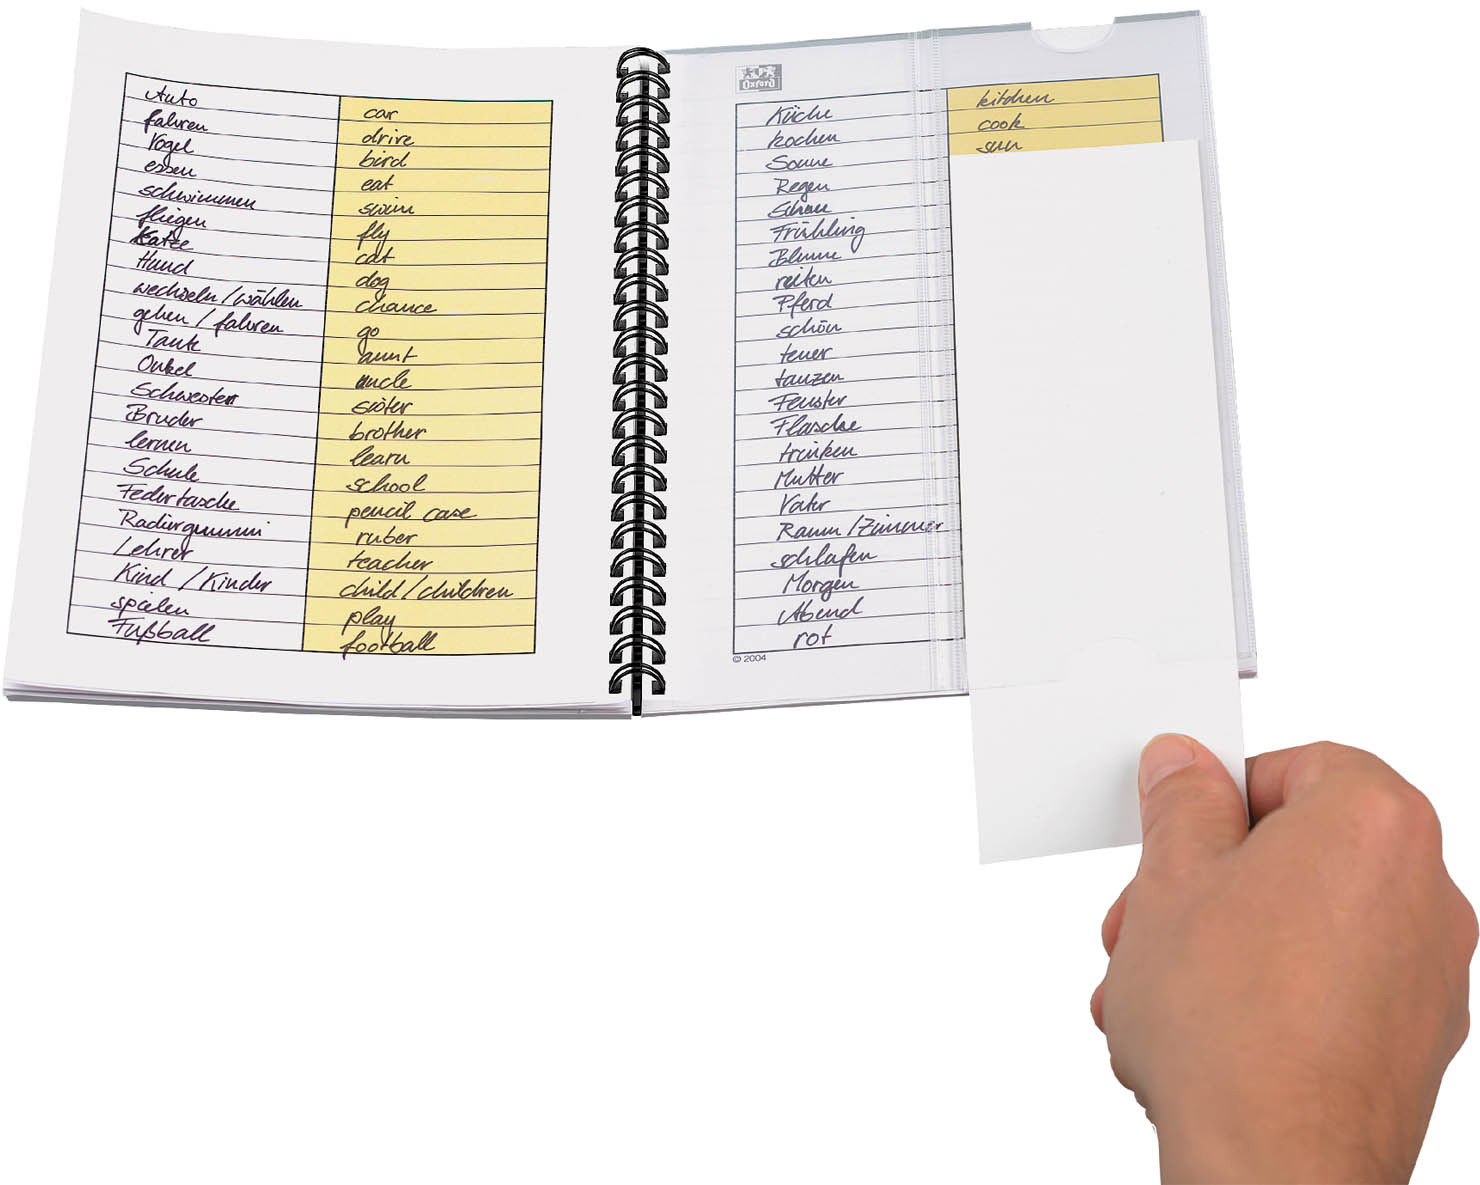 Auto car
fahren drive
Vogel bird
essen eat
schwimmen swim
fliegen fly
Katze cat
Hund dog
wechseln / wählen chance
gehen / fahren go
Tante aunt
Onkel uncle
Schwester sister
Bruder brother
lernen learn
Schule school
Federtasche pencil case
Radiergummi ruber
Lehrer teacher
Kind / Kinder child / children
spielen play
Fußball football
Oxford
Küche kitchen
kochen cook
Sonne sun
Regen
Frühling
Blume
reiten
Pferd
schön
teuer
tanzen
Fenster
Flasche
trinken
Mutter
Vater
Raum / Zimmer
schlafen
Morgen
Abend
rot
© 2004